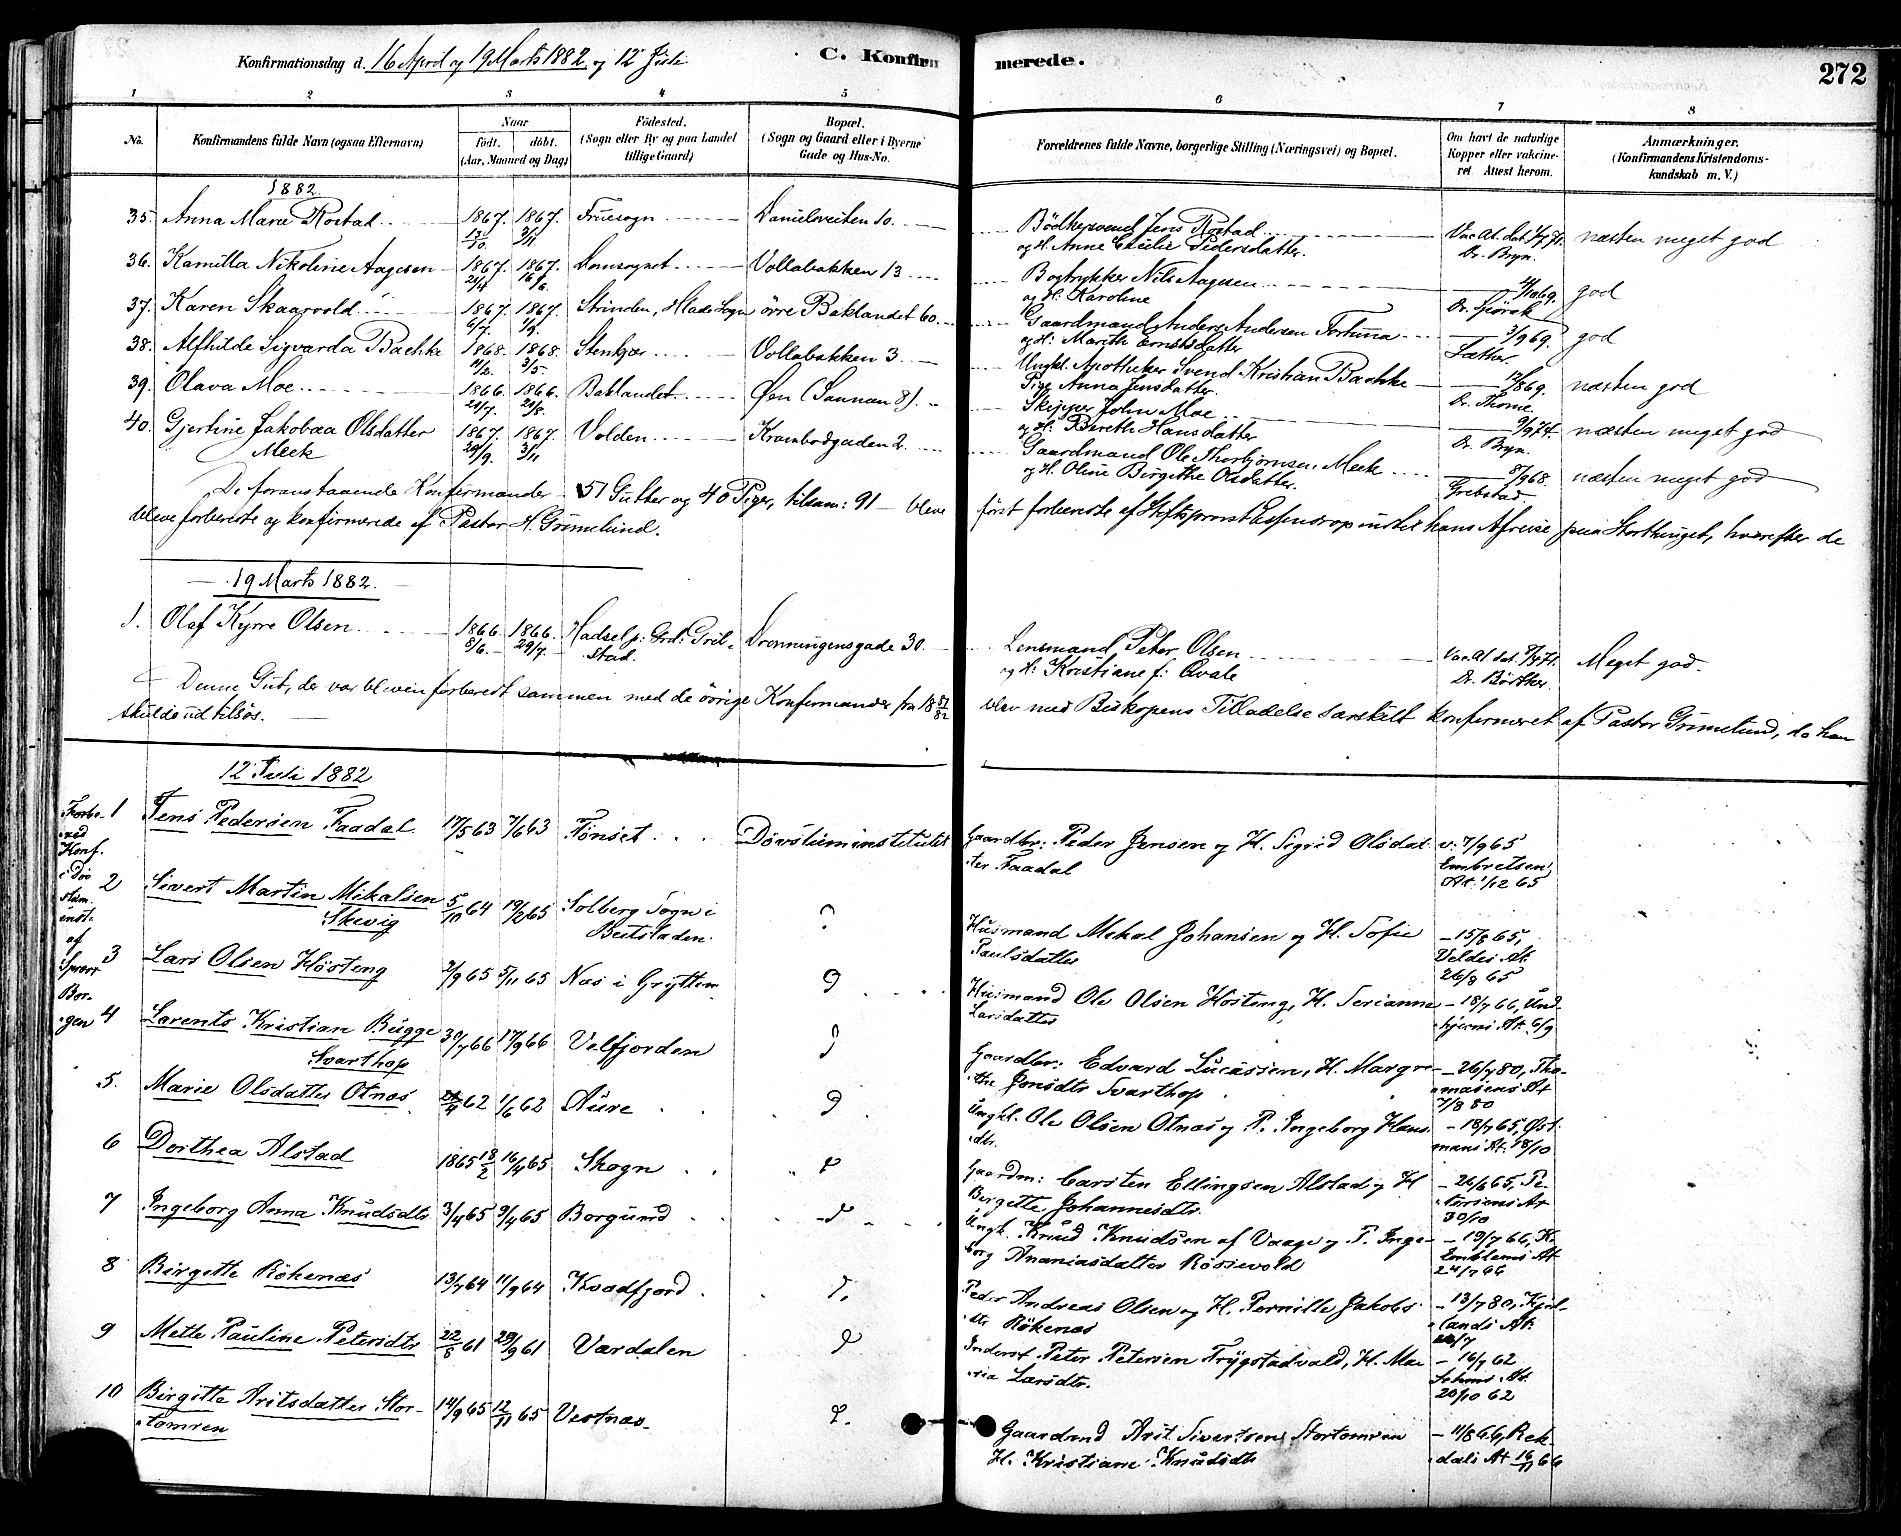 Konfirmationsdag d. 16 April og 19 Marts 1882 og 12 Juli
C. Konfirmerede.
272
1 2 3 4 5 6 7 8
No.
Konfirmandens fulde Navn (ogsaa Efternavn)
Naar
født. døbt.
(Aar, Maaned og Dag)
Fødested.
(Sogn eller By og paa Landet
tillige Gaard)
Bopæl.
(Sogn og Gaard eller i Byerne
Gade og Hus-No.
Forældrenes fulde Navne, borgerlige Stilling (Næringsvei) og Bopæl.
Om havt de naturlige
Kopper eller vakcine-
ret Attest herom.
Anmærkninger.
(Konfirmandens Kristendoms-
kundskab m. V.)
1882.
35. Anna Marie Rostad 1867. 13/10. 1867. 3/11. Fruesogn Danielsveiten 10. Bödkersvend Jens Rostad
og H. Anne Cecilie Pedersdatter. Dr. Bryn. næsten meget god
36. Kamilla Nikoline Aagesen 1867. 21/4 1867. 16/6. Domsognet Vollabakken 13 Bogtrykker Nils Aagesen
og H. Karoline god
37. Karen Skaarvold 1867. 6/7. 1867. Strinden, Hlade Sogn övre Baklandet 60. Gaardmand Anders Andersen Fortuna
og H: Marith Erntsdatter 3/9 69. god
38. Alfhilde Sigvarda Bachke 1868. 11/2. 1868. 3/5. Stenkjær Vollabakken 3. Ungkl. Apotheker Svend Kristian Bachke
Pige Anna Jensdatter 17/8 69. Dr. Thorne næsten god
39. Olava Moe 1866. 21/7. 1866. 21/8. Baklandet Øen (Sannan 8). Skipper John Moe
og H: Bereth Hansdatter 9/9 74. Dr. Bryn. næsten meget god
40. Gjertine Jakobæa Olsdatter
Meek 1867. 29/9. 1867. 3/11 Volden Krambodgaden 2. Gaardmand Ole Thorbjörnsen Meek
og H. Oline Birgithe Olsdatter. 8/9 68. Grebstad. næsten meget god
De foranstaaende Konfirmander 51 Gutter og 40 Piger, tilsam: 91 - bleve först forberedte af Stiftsprovst Essendrop indtil hans Afreise paa Storthinget, hvorefter de
bleve forberedte og konfirmerede af Pastor H. Grimelund.
19 Marts 1882.
1. Olaf Kyrre Olsen 1866. 8/6. 1866. 29/7. Hadselp: Grd: Gril-
stad. Dronningensgade 30. Lensmand Peter Olsen
og H: Kristiane f: Qvale Meget god.
Denne Gut, der var bleven forberedt sammen med de övrige Konfirmander fra 18 81/82 blev med Biskopens Tilladelse særskilt konfirmeret af Pastor Grimelund, da han
skulde ud tilsös.
12 Juli 1882
Forbe-
red
Konf.
i Döv
stum
inst.
af
Sverr
Bor-
gen
1 Jens Pedersen Faadal 17/5 63 7/6 63 Tönset Dövstuminstitutet Gaardbr: Peder Jensen og H. Sigrid Olsdat
ter Faadal v: 7/9 65
Embretsen,
At. 1/12 65
2 Sivert Martin Mikalsen
Skevig 5/10 64 19/2 65 Solberg Sogn i
Beitstaden. Husmand Mekal Johansen og H. Sofie
Paulsdatter - 15/8 65,
Veldes At.
26/8 65
3 Lars Olsen Hösteng 2/9 65 5/11 65 Næs i Grytten Husmand Ole Olsen Hösteng, H. Serianna
Larsdatter - 18/7 66, Und-
hjems At. 6/9
4 Larents Kristian Bugge
Svarthop 30/7 66 17/9 66 Velfjorden Gaardbr: Edvard Lucassen, H. Margre-
the Jonsdtr Svarthop - 26/7 80, Tho-
masens At
7/8 80
5. Marie Olsdatter Otnæs 62 1/6 62 Aure Ungkl. Ole Olsen Otnæs og P. Ingeborg Hans
dtr. - 18/7 65, Øst-
mans At. 18/10
6 Dorthea Alstad 1865 18/2 16/4 65 Skogn Gaardm: Carsten Ellingsen Alstad og H
Bergette Johannesdtr. - 26/6 65, Pe-
tersens At
30/10
7 Ingeborg Anna Knudsdtr 3/4 65 9/4 65 Borgund Ungk. Knud Knudsen af Vaage og P. Inge-
borg Ananiasdatter Rösievold - 19/7 66, K.
Emblems At
24/7 66
8 Birgette Rökenæs 13/7 64 11/9 64 Kvædfjord Peder Andreas Olsen og H. Pernille Jakobs
dtr Rökenæs - 13/7 80, Kjel-
lands At.
9 Mette Pauline Petersdtr 22/8 61 29/9 61 Værdalen Inderst Peter Petersen Trygstadvald, H. Ma-
ria Larsdtr. - 16/7 62
20/10 62
10 Birgitte Aritsdatter Stor-
tomren 14/9 65 12/11 65 Vestnæs Gaardmd Arit Sivertsen Stortomren
H. Kristiane Knudsdtr - 11/8 66, Rek-
dals At 16/11 66